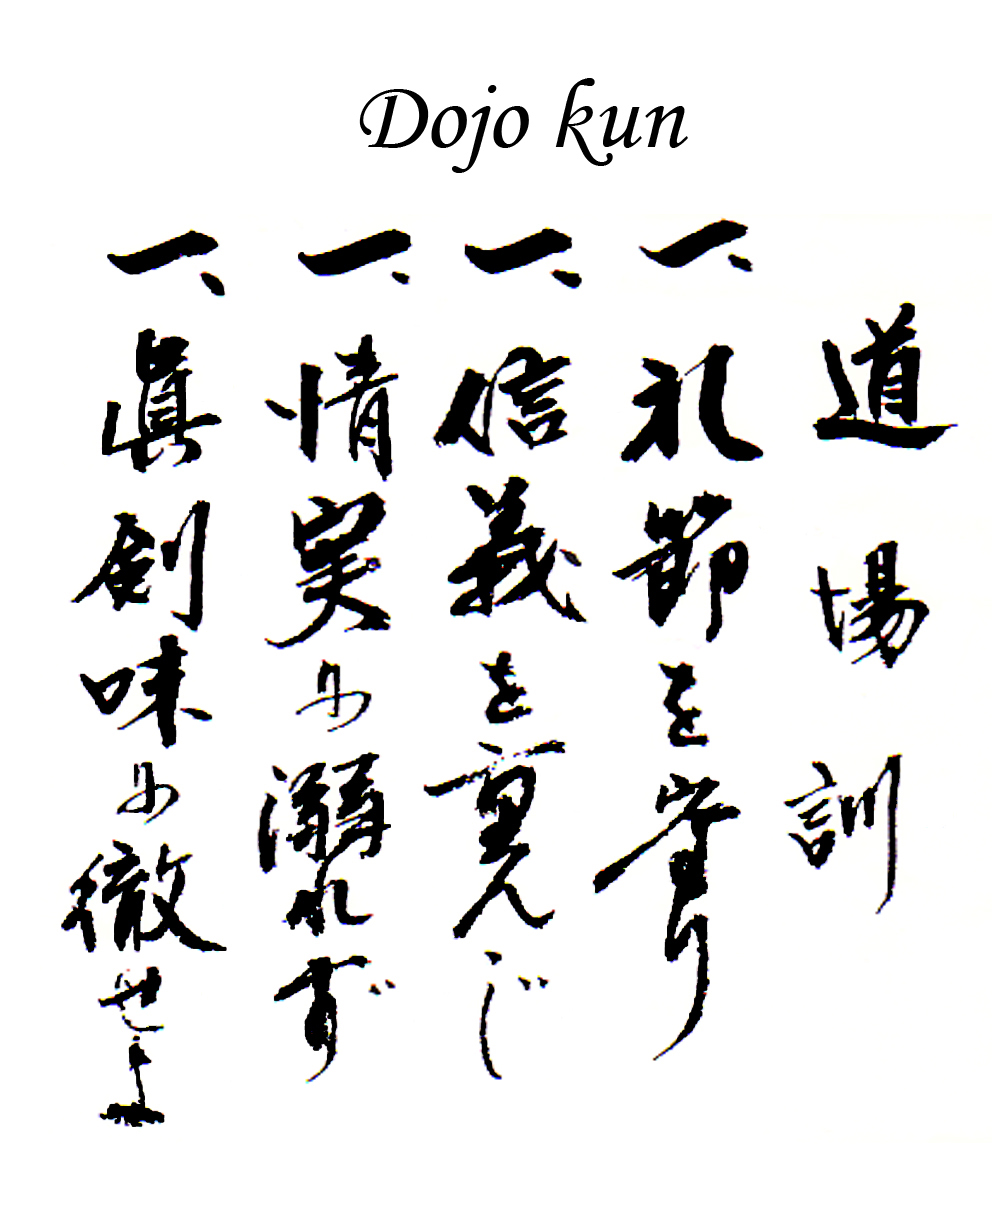 Dojo kun
道場訓
一、礼節を守り
一、信義を重んじ
一、情実に溺れず
一、眞剣味に徹せよ